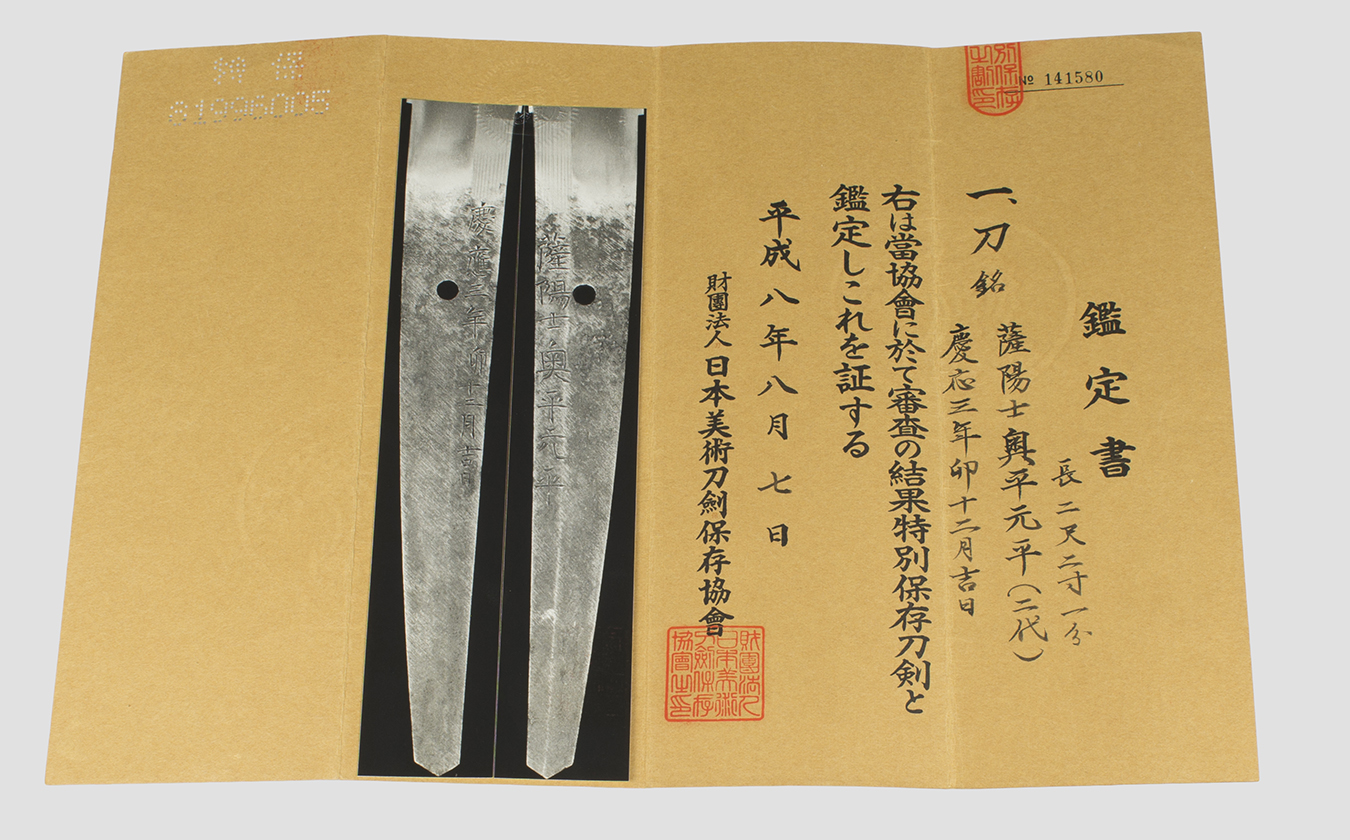 № 141580
鑑定書
一、刀 銘 薩陽士奥平元平(二代)
長二尺二寸一分
慶応三年卯十二月吉日
右は當協會に於て審査の結果特別保存刀剣と
鑑定しこれを証する
平成八年八月七日
財團法人日本美術刀劍保存協會
財團法人
日本美術
刀劍保存
協會之印
薩陽士奥平元平
慶應三年卯十二月吉日
特保
81996005